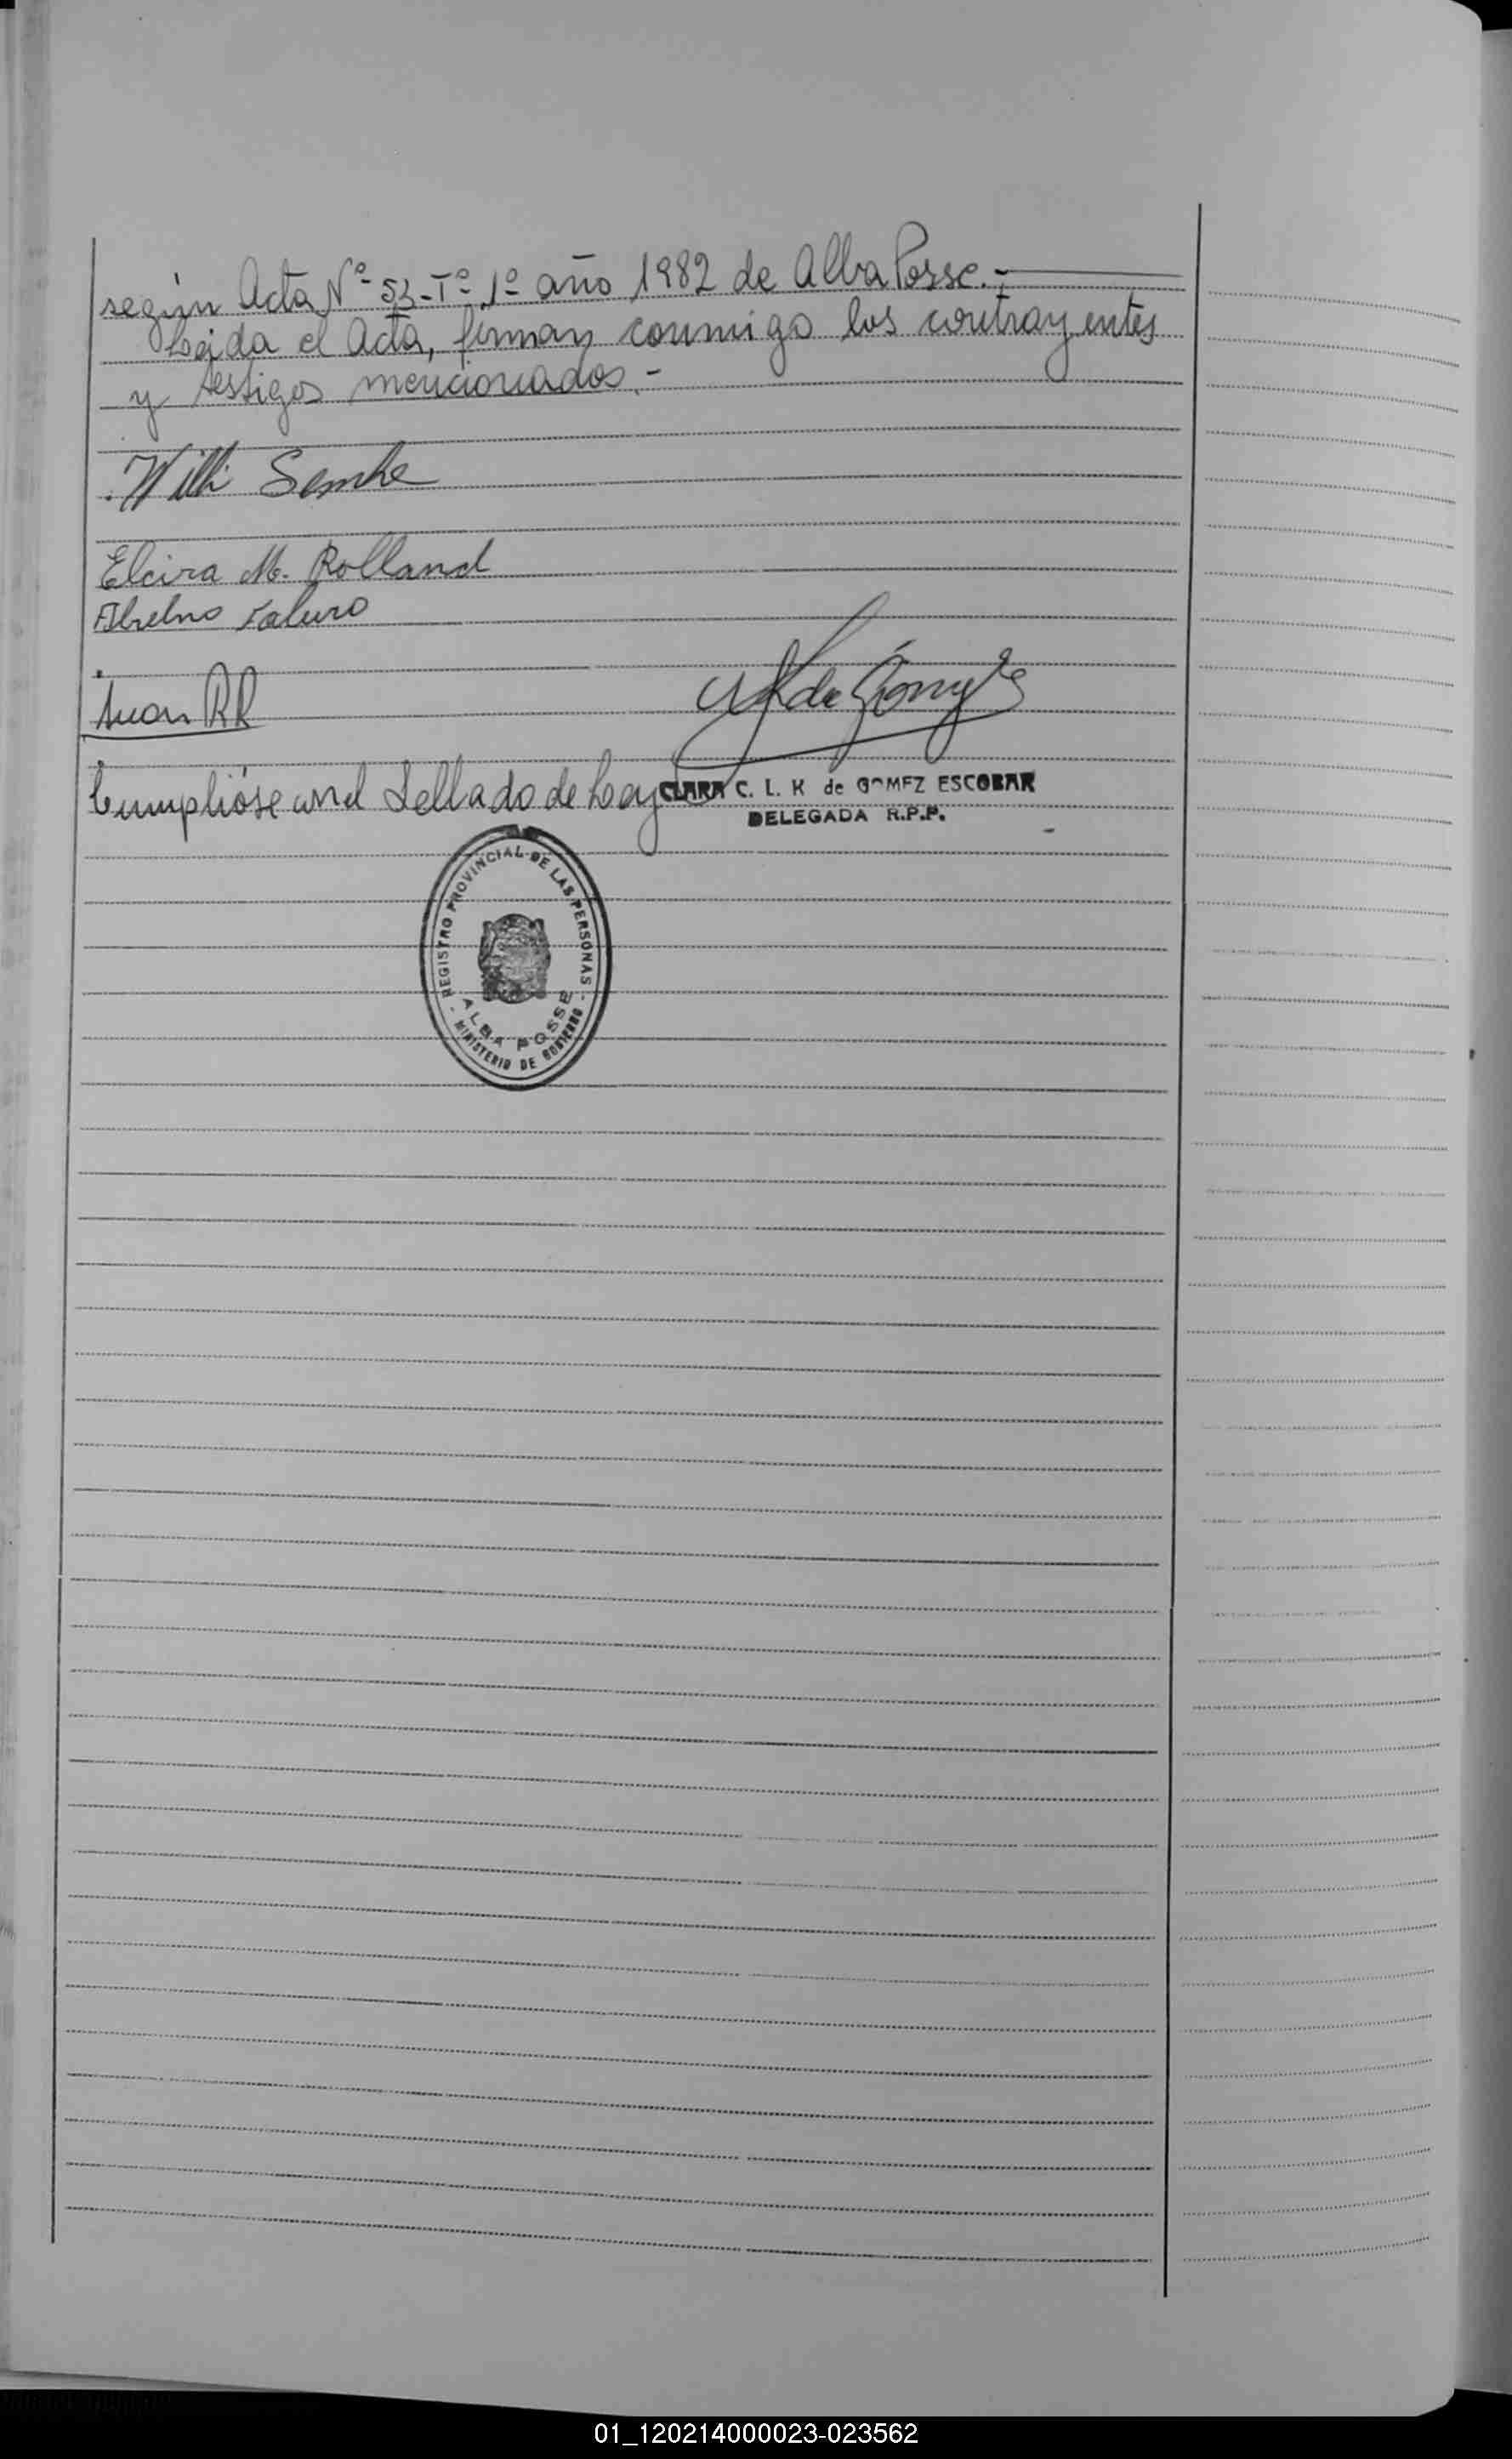 según Acta Nº 53-Tº 1º año 1982 de Alba Posse.-
Leida el Acta, firman conmigo los contrayentes
y testigos mencionados.-
Willi Semke
Elcira M. Rolland
Juan RR
de Gómez
Cumplióse con el Sellado de Ley
CLARA C. L. K de GOMEZ ESCOBAR
DELEGADA R.P.P.
- REGISTRO PROVINCIAL DE LAS PERSONAS -
ALBA POSSE
MINISTERIO DE GOBIERNO
01_120214000023-023562